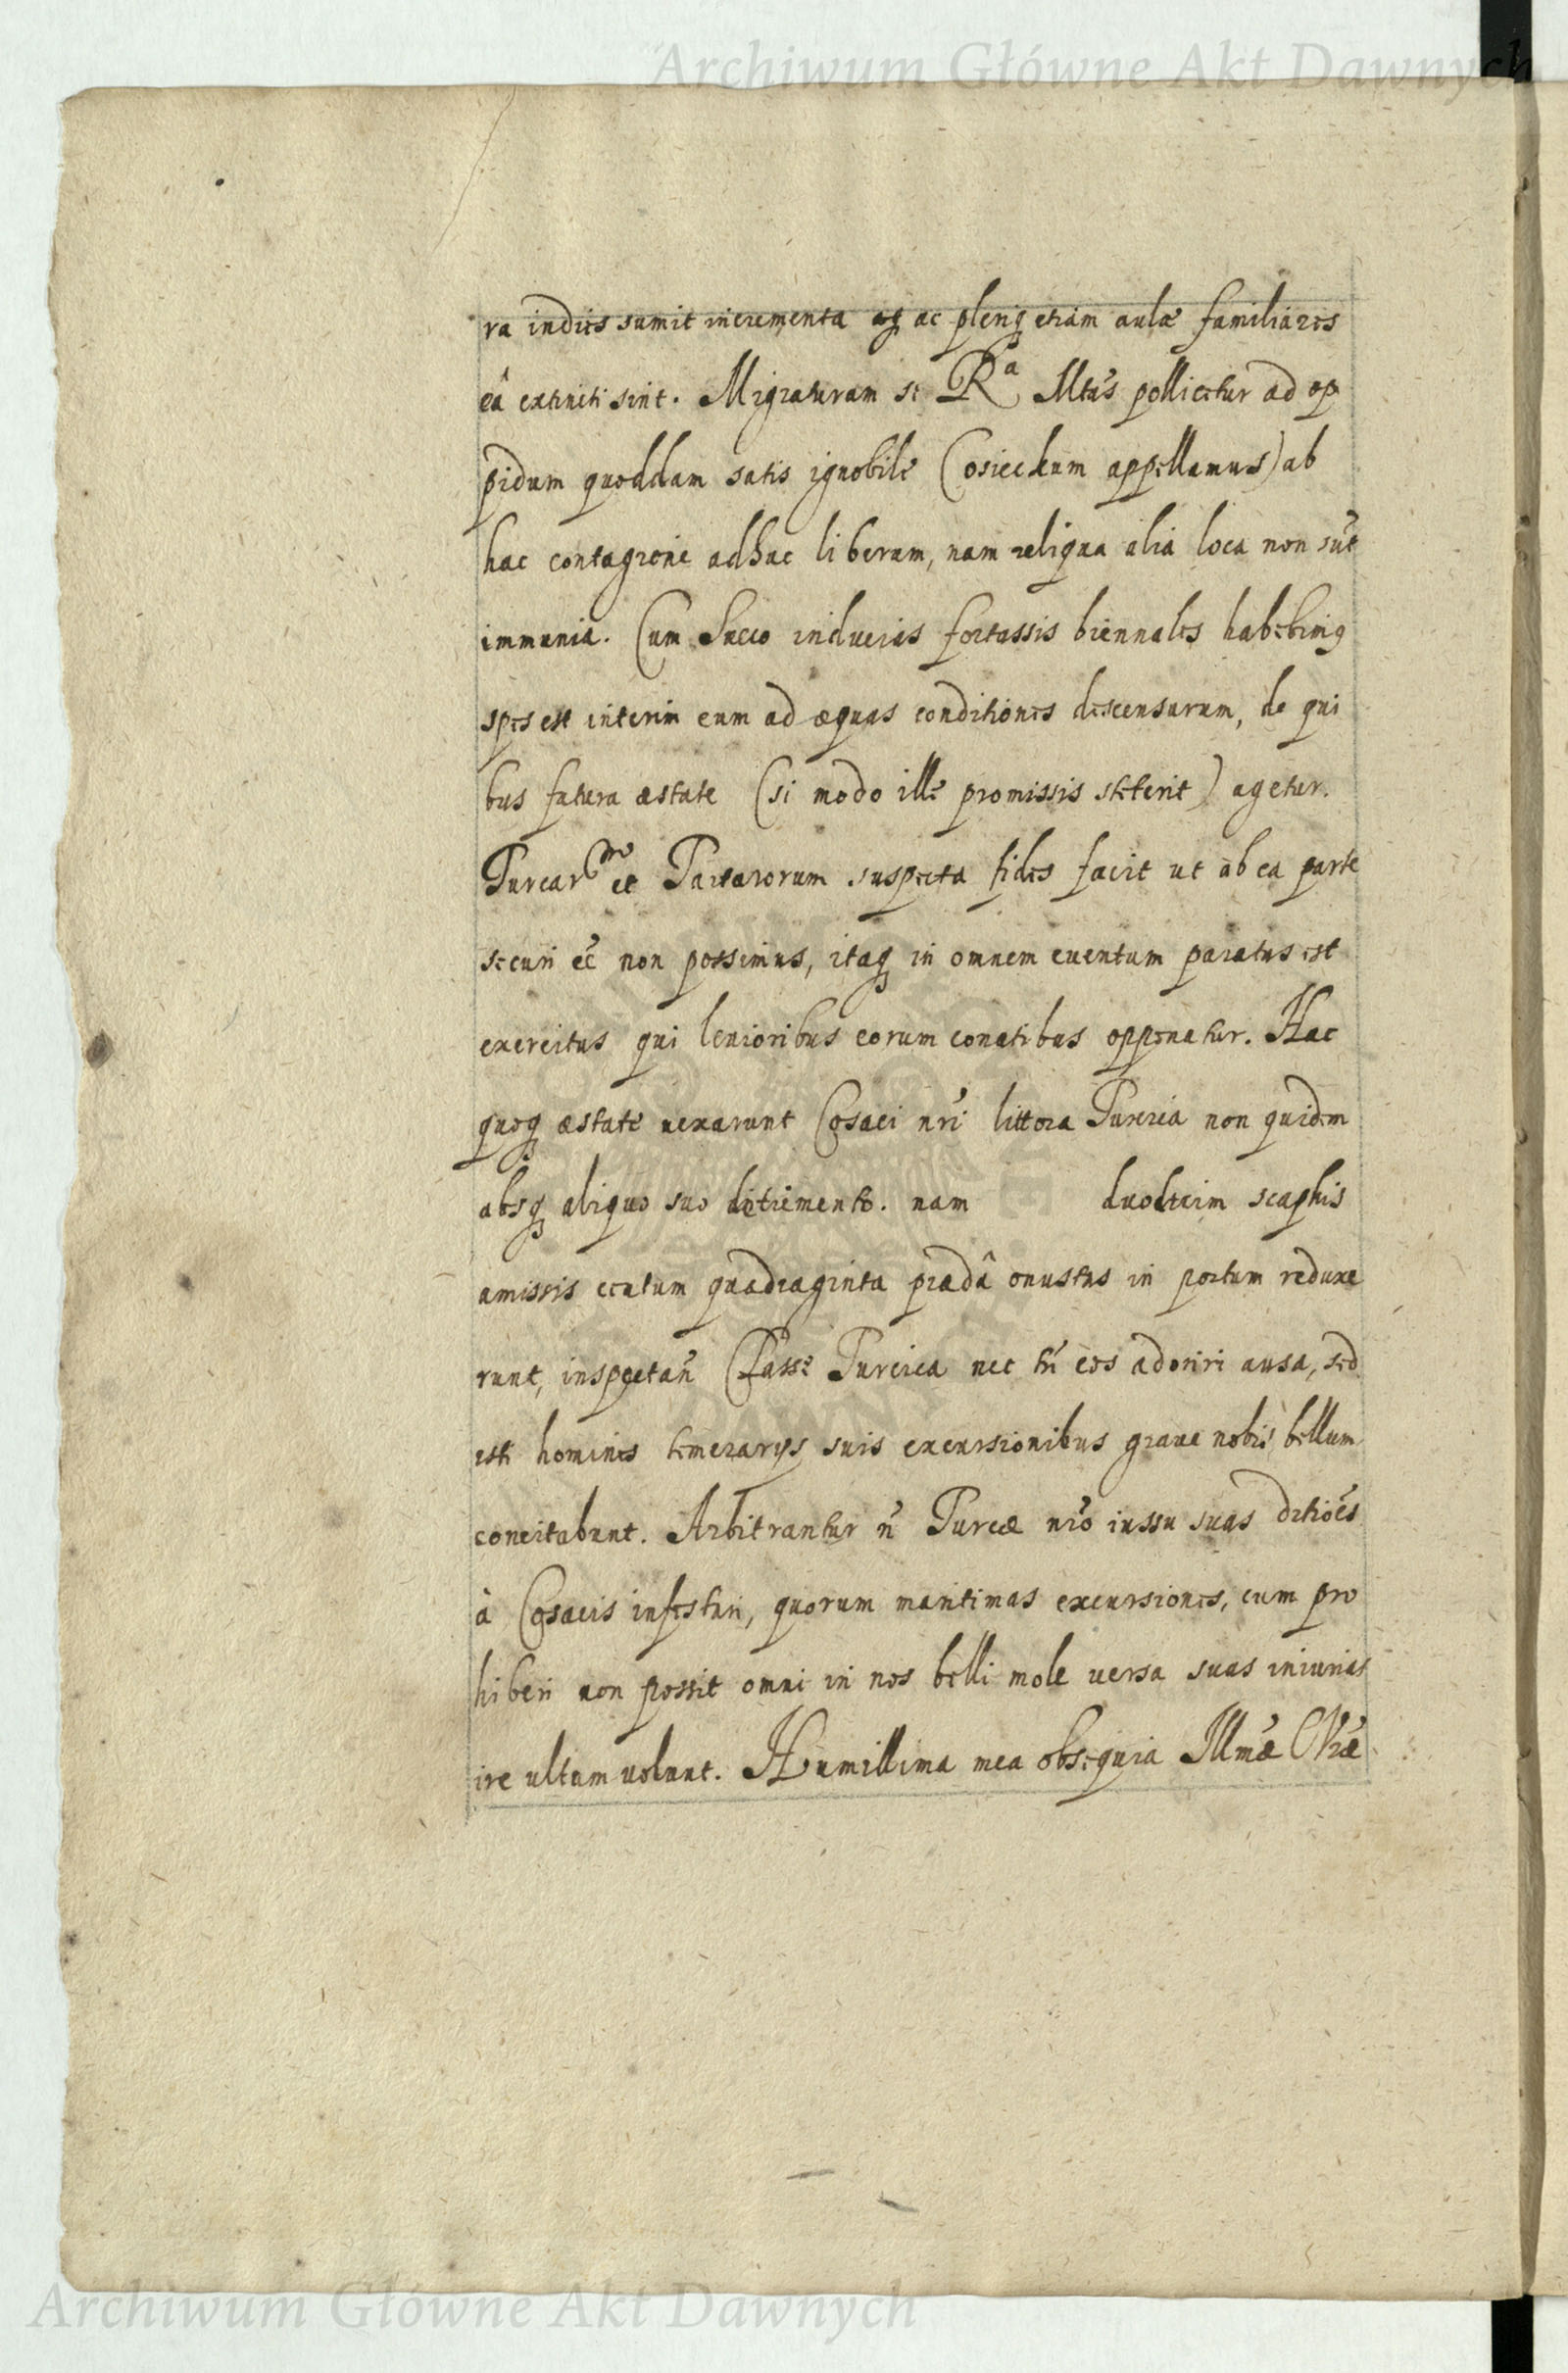 Archiwum Główne Akt Dawnych
ra indies sumit incrementa aq ac pleriq etiam aulæ familiares
eâ extincti sint. Migraturam se Rª Mtas pollicetur ad op
pidum quoddam satis ignobile (osieckum appellamus) ab
hac contagione adhuc liberum, nam reliqua alia loca non sūt
immunia. Cum Sueco inducias fortassis biennales habebimq
spes est interim eum ad æquas conditiones descensurum, de qui
bus futura æstate (si modo ille promissis steterit) agetur.
Turcarum et Tartarorum suspecta fides facit ut ab ea parte
securi eē non possimus, itaq in omnem euentum paratus est
exercitus qui leuioribus eorum conatibus opponatur. Hac
quoq æstate uexarunt Cosaci nr̄i littora Turcica non quidem
absq aliquo suo detrimento. nam duodecim scaphis
amissis centum quadraginta prædâ onustas in portum reduxe
runt, inspectan̄ Classe Turcica nec tn̄ eos adoriri ausa, sed
isti homines temerarijs suis excursionibus graue nobis bellum
concitabunt. Arbitrantur n̄ Turcæ nr̄o iussu suas ditiōes
à Cosacis infestari, quorum maritimas excursiones, cum pro
hiberi non possit omni in nos belli mole uersa suas iniurias
ire ultum uolunt. Humillima mea obsequia Illm̄æ Vr̄æ
Archiwum Główne Akt Dawnych